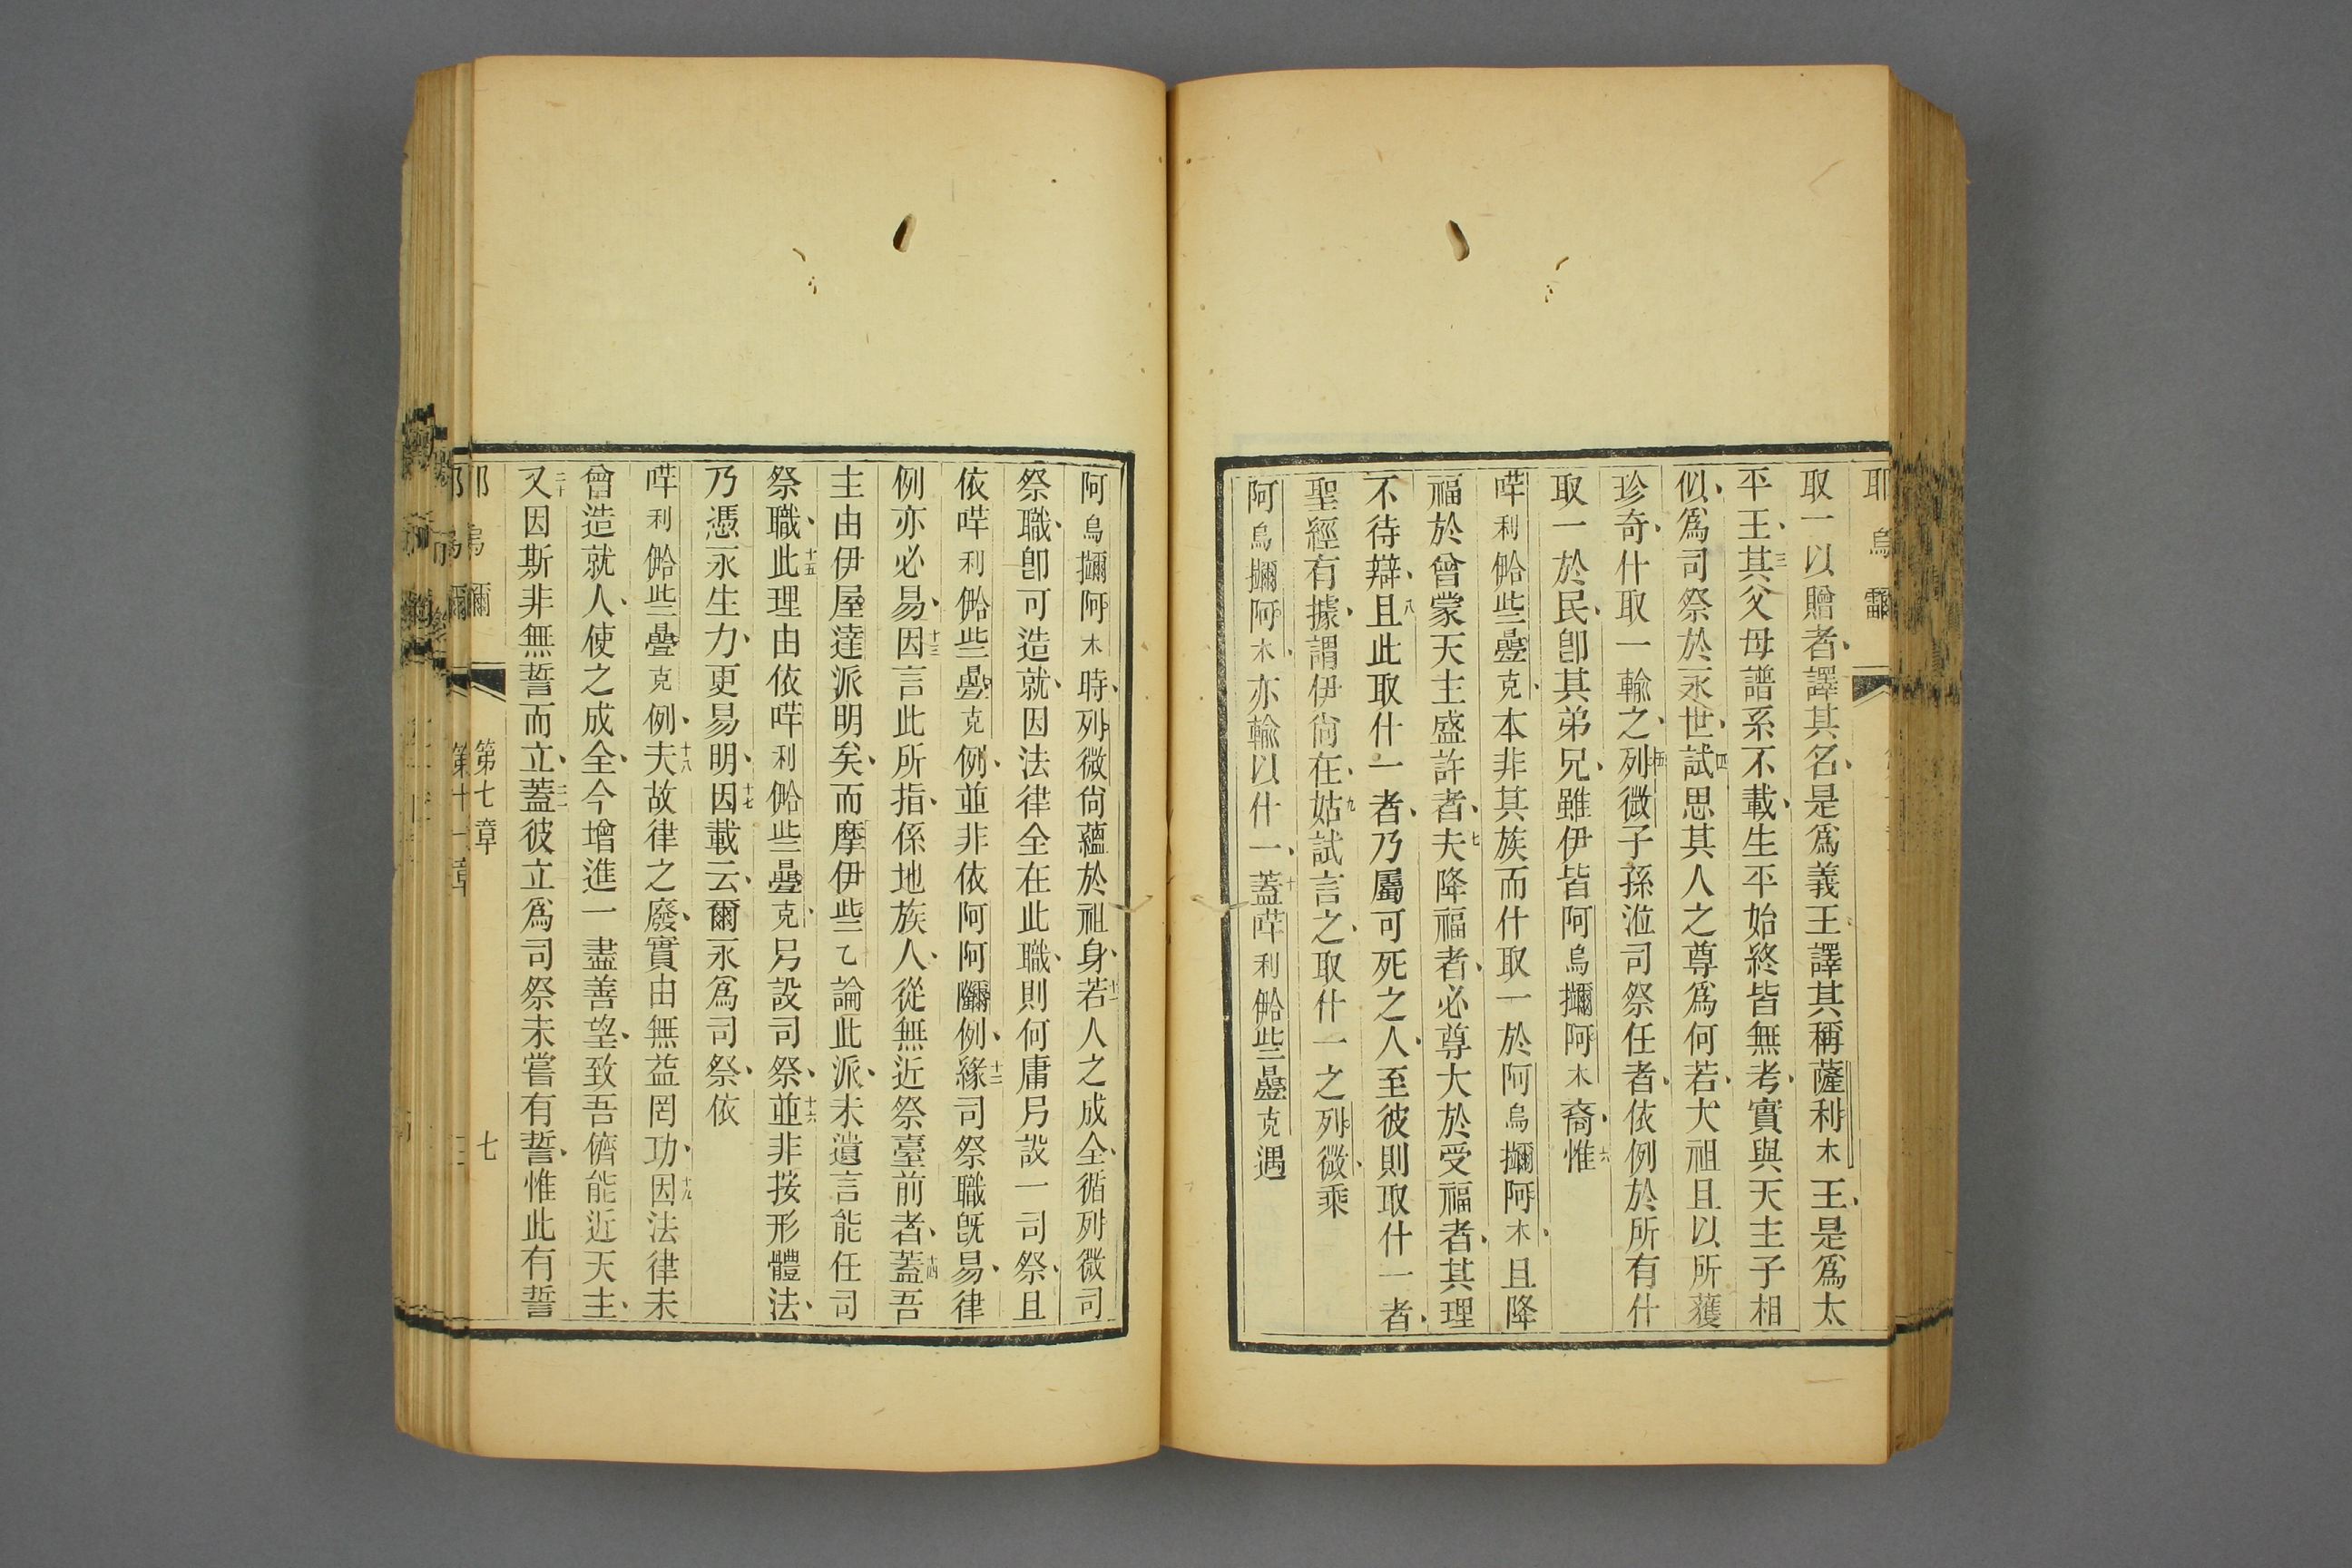 耶烏爾
取一以贈者譯其名是爲義王譯其稱薩利木王是爲太
平王三其父母譜系不載生平始終皆無考實與天主子相
似爲司祭於永世四試思其人之尊爲何若大祖且以所獲
珍奇什取一輸之五列微子孫涖司祭任者依例於所有什
取一於民卽其弟兄雖伊皆阿烏擟阿木裔惟六
哶利𠌥些疊克本非其族而什取一於阿烏擟阿木且降
福於曾蒙天主盛許者七夫降福者必尊大於受福者其理
不待辯八且此取什一者乃屬可死之人至彼則取什一者
聖經有據謂伊尙在九姑試言之取什一之列微乘
阿烏擟阿木亦輸以什一十蓋哶利𠌥些疊克遇
阿烏擟阿木時列微尙蘊於祖身十一若人之成全循列微司
祭職卽可造就因法律全在此職則何庸另設一司祭且
依哶利𠌥些疊克例並非依阿阿㘓例十二緣司祭職旣易律
例亦必易十三因言此所指係地族人從無近祭臺前者十四蓋吾
主由伊屋達派明矣而摩伊些乙論此派未遺言能任司
祭職十五此理由依哶利𠌥些疊克另設司祭十六並非按形體法
乃憑永生力更易明十七因載云爾永爲司祭依
哶利𠌥些疊克例十八夫故律之廢實由無益罔功十九因法律未
曾造就人使之成全今增進一盡善望致吾儕能近天主
二十又因斯非無誓而立二一蓋彼立爲司祭未嘗有誓惟此有誓
耶烏爾
第七章
七
第十一章